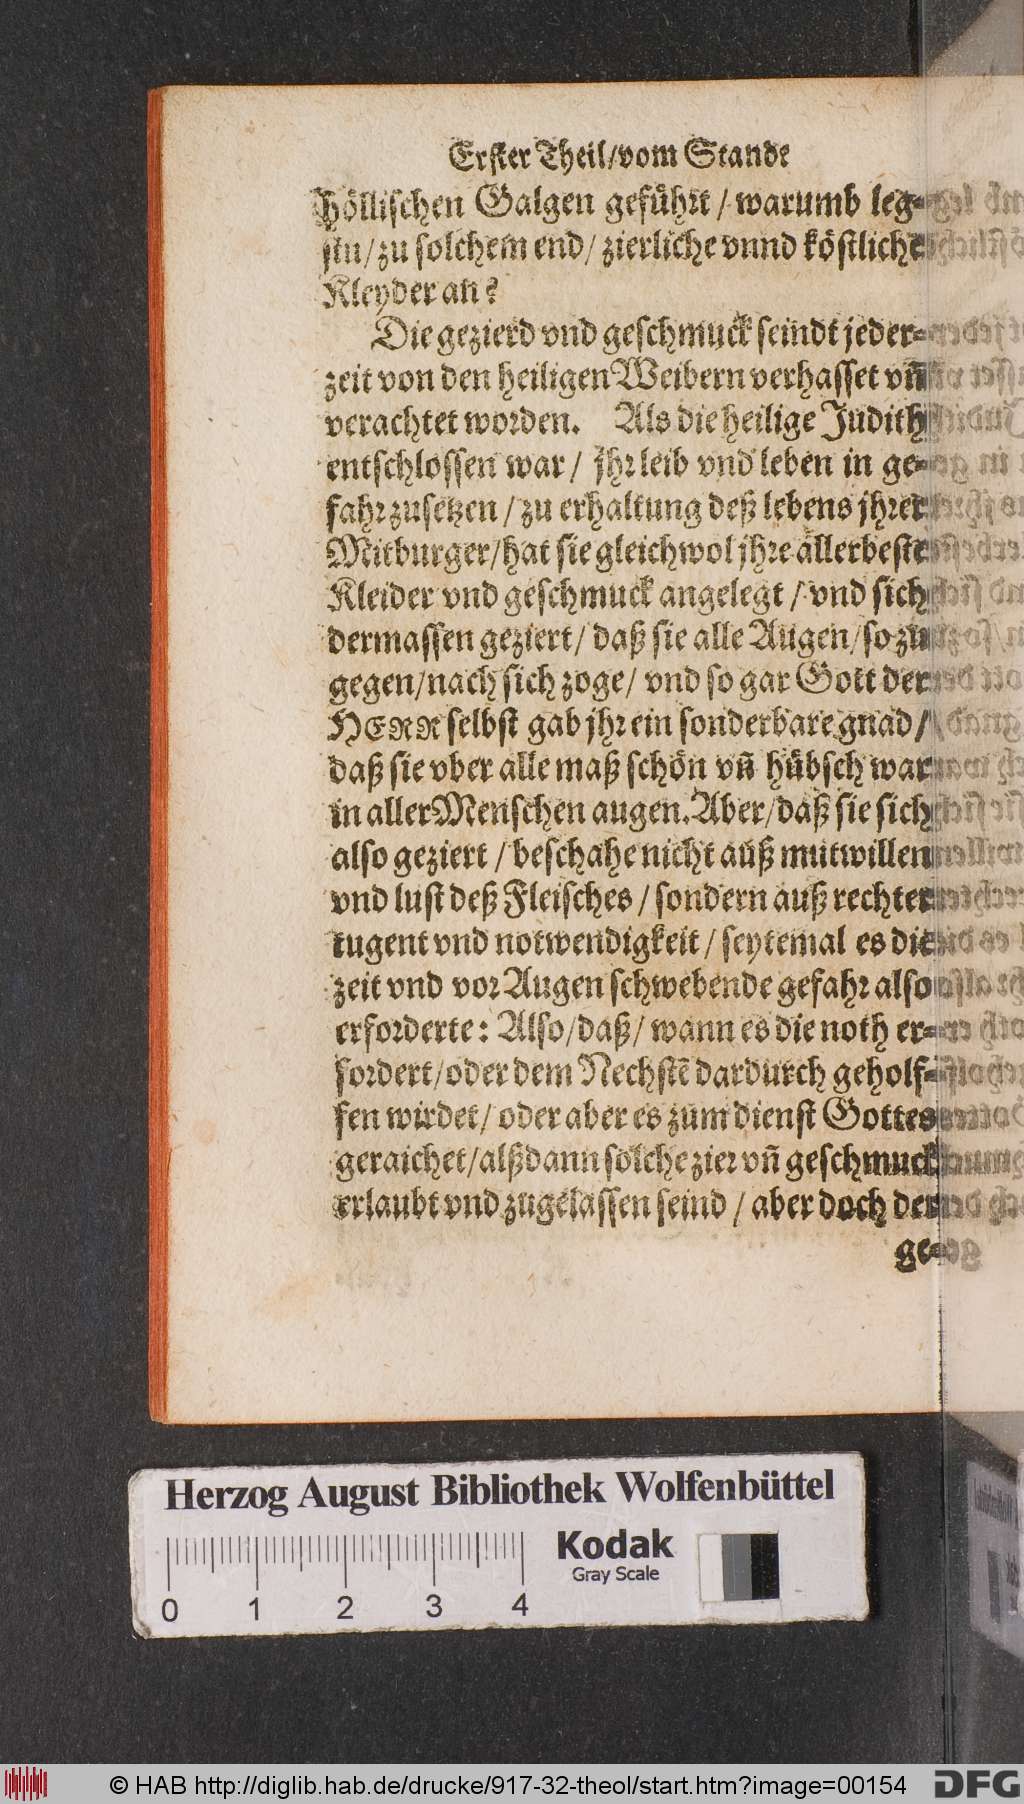 Erster Theil/vom Stande
höllischen Galgen geführt / warumb leg-
stu/zu solchem end/ zierliche vnnd köstliche
Kleyder an?
Die gezierd vnd geschmuck seindt jeder-
zeit von den heiligen Weibern verhasset vñ
verachtet worden. Als die heilige Judith
entschlossen war / jhr leib vnd leben in ge-
fahr zusetzen / zu erhaltung deß lebens jhrer
Mitburger/hat sie gleichwol jhre allerbeste
Kleider vnd geschmuck angelegt / vnd sich
dermassen geziert/ daß sie alle Augen/so zu
gegen/nach sich zoge/ vnd so gar Gott der
HERR selbst gab jhr ein sonderbare gnad/
daß sie vber alle maß schön vñ hübsch war
in aller Menschen augen. Aber/daß sie sich
also geziert / beschahe nicht auß mutwillen
vnd lust deß Fleisches / sondern auß rechter
tugent vnd notwendigkeit / seytemal es die
zeit vnd vor Augen schwebende gefahr also
erforderte: Also/daß/ wann es die noth er-
fordert/oder dem Nechstẽ dardurch geholf-
fen wirdet/ oder aber es zum dienst Gottes
geraichet/alßdann solche zier vñ geschmuck
erlaubt vnd zugelassen seind / aber doch der
ge-
Herzog August Bibliothek Wolfenbüttel
Kodak
Gray Scale
0 1 2 3 4
© HAB http://diglib.hab.de/drucke/917-32-theol/start.htm?image=00154
DFG